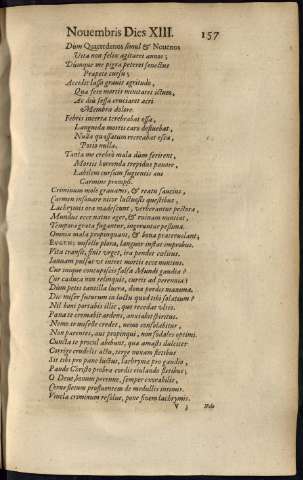 Nouembris Dies XIII. 157
Dum Quaterdenos simul & Nouenos
Vita non felix agitaret annos;
Dúmque me pigra peteret senectus
Præpete cursu;
Accedit lasso grauis ægritudo,
Quæ fere mortis minitaret ictum,
Ac diù fessa cruciaret acri
Membra dolore.
Febris incerta terebrabat ossa,
Languida mortis caro defluebat,
Nulla quassatum recreabat esca,
Potio nulla.
Tanta me crebrò mala dum ferirent,
Mortis horrenda trepidus pauore,
Labilem cursum fugientis æui
Carmine prompsi.
Criminum mole grauatus, & reatu saucius,
Carmen insonare nitor luctuosis questibus,
Lachrymis ora madescunt, verberantur pectora,
Mundus ecce nutat æger, & ruinam nuntiat,
Tempora grata fugantur, ingeruntur pessima.
Omnia mala propinquant, & bona præteruolant;
EVGENI miselle plora, languor instat improbus.
Vita transit, finis vrget, ira pendet cælitus.
Ianuam pulsat vt intret mortis ecce nuntius.
Cur inique concupiscis falsa Mundi gaudia?
Cur caduca non relinquis, curris ad perennia?
Dum petis tantilla lucra, dona perdis maxima.
Dic miser futurum in luctu quod tibi solatium?
Nil boni portabis illic, quo recedas vltrò.
Pœna te cremabit ardens, anxiabit spiritus.
Nemo te miselle credet, nemo consolabitur,
Non parentes, aut propinqui, non sodales optimi.
Cuncta te procul abibunt, quæ amasti dulciter.
Corrige crudelis actu, terge noxam fletibus
Sit tibi pro pane luctus, lachrymæ pro gaudio,
Pande Christo probra cordis eiulando fletibus;
O Deus, bonum perenne, semper exorabilis,
Cerne fletum profluentem de medullis intimis.
Vincla criminum resolue, pone finem lachrymis.
V 3